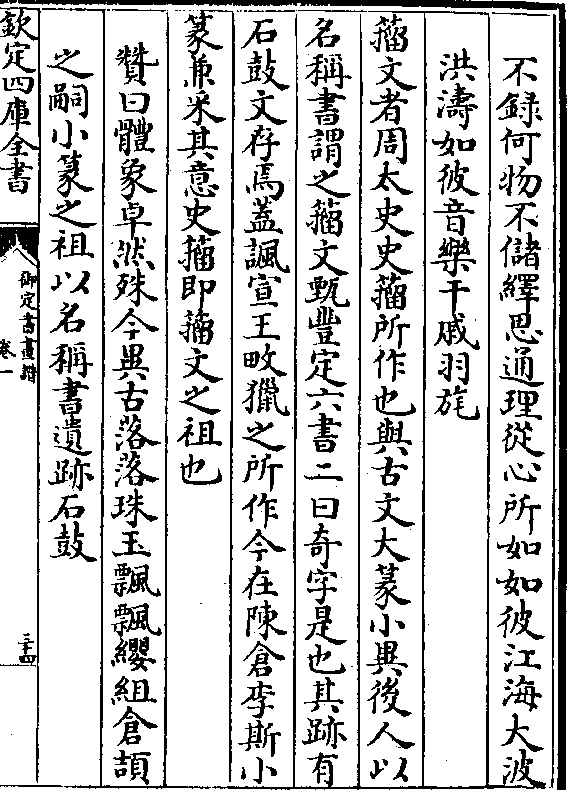 不録何物不儲繹思通理從心所如如彼江海大波
洪濤如彼音樂干戚羽旄
籀文者周太史史籀所作也與古文大篆小異後人以
名稱書謂之籀文甄豐定六書二曰奇字是也其跡有
石鼓文存焉蓋諷宣王畋獵之所作今在陳倉李斯小
篆兼采其意史籀即籀文之祖也
贊曰體象卓然殊今異古落落珠玉飄飄纓組倉頡
之嗣小篆之祖以名稱書遺跡石鼓
欽定四庫全書
御定書畫譜
卷一
三十四